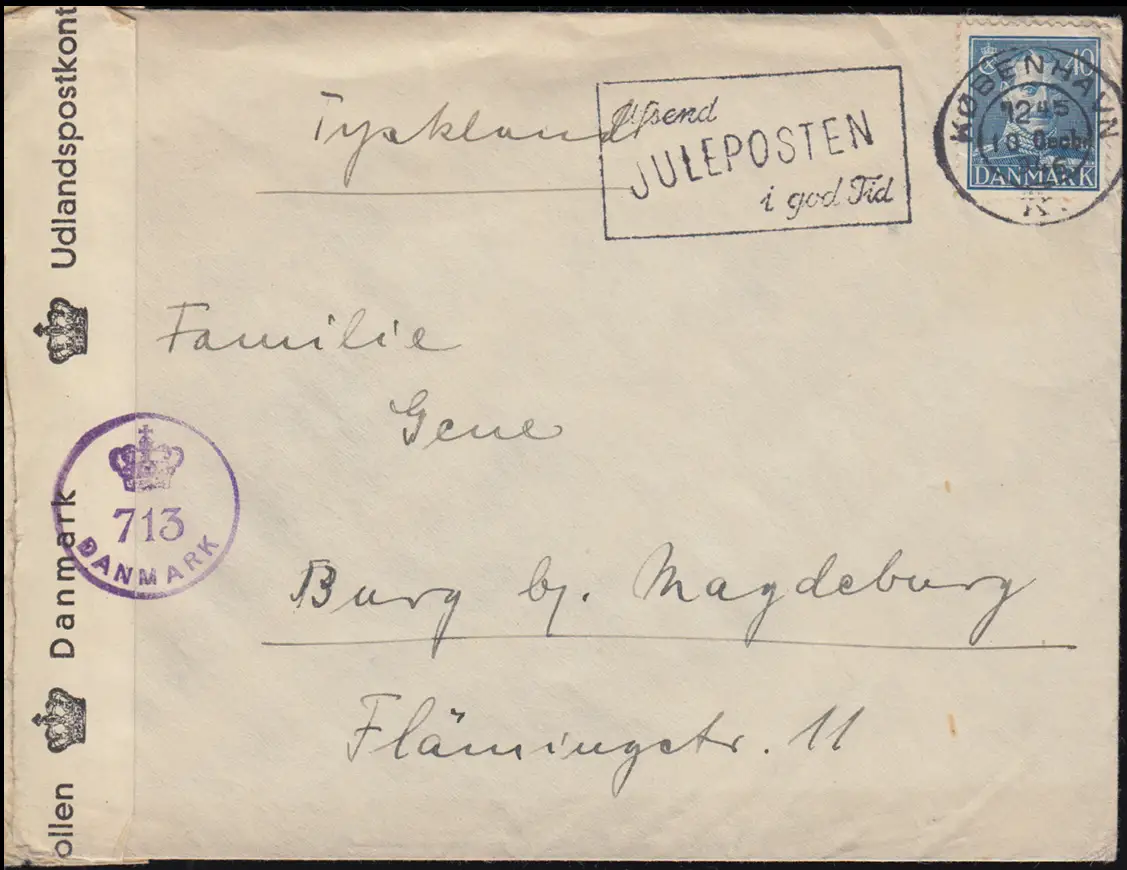 Udlandspostkont
Danmark
ollen
713
DANMARK
Tyskland
Afsend
JULEPOSTEN
i god Tid
KØBENHAVN
1245
10 Decbr
K.
40
DANMARK
Familie
Gene
Burg bj. Magdeburg
Flämingstr. 11